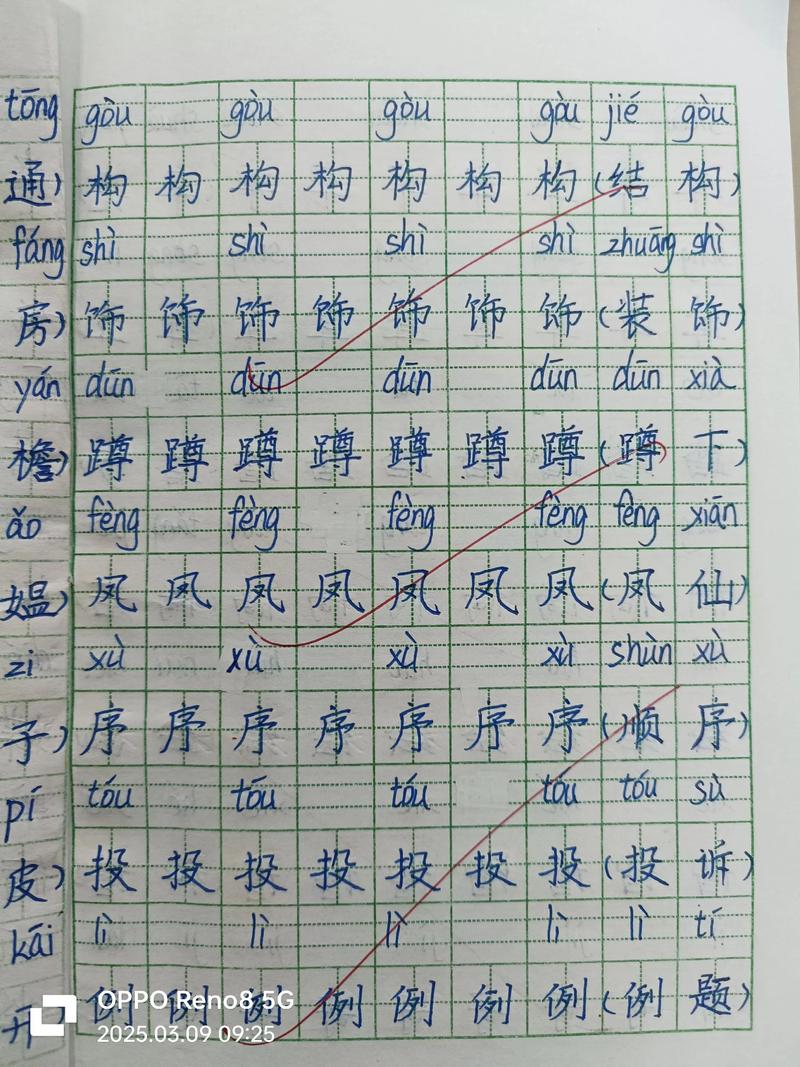 tōng gòu gòu gòu gòu jié gòu
通) 构 构 构 构 构 构 构 (结 构)
fáng shì shì shì shì zhuāng shì
房) 饰 饰 饰 饰 饰 饰 饰 (装 饰)
yán dūn dūn dūn dūn dūn xià
檐) 蹲 蹲 蹲 蹲 蹲 蹲 蹲 (蹲 下)
ǎo fèng fèng fèng fèng fèng xiān
媪) 凤 凤 凤 凤 凤 凤 凤 (凤 仙)
zi xù xù xù xù shùn xù
子) 序 序 序 序 序 序 序 (顺 序)
pí tóu tóu tóu tóu tóu sù
皮) 投 投 投 投 投 投 投 (投 诉)
kāi lì lì lì lì lì tí
开) 例 例 例 例 例 例 例 (例 题)
OPPO Reno8 5G
2025.03.09 09:25